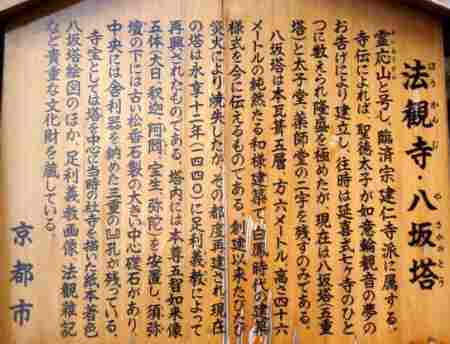 法観寺・八坂塔
ほうかんじ やさかのとう
霊応山と号し、臨済宗建仁寺派に属する。
寺伝によれば、聖徳太子が如意輪観音の夢の
お告げにより建立し、往時は延喜式七ヶ寺のひと
つに数えられ隆盛を極めたが、現在は八坂塔(五重
塔)と太子堂、薬師堂の二宇を残すのみである。
八坂塔は本瓦葺五層、方六メートル、高さ四十六
メートルの純然たる和様建築で、白鳳時代の建築
様式を今に伝えるものである。創建以来たびたび
災火により焼失したが、その都度再建され、現在
の塔は永享十二年(一四四〇)に足利義教によって
再興されたものである。塔内には本尊五智如来像
五体(大日、釈迦、阿閦、宝生、弥陀)を安置し、須弥
壇の下には古い松香石製の大きい中心礎石があり、
中央には舎利器を納めた三重の凹孔が残っている。
寺宝としては塔を中心に当時の社寺を描いた紙本著色
八坂塔絵図のほか、足利義教画像、法観雑記
など貴重な文化財を蔵している。
京都市